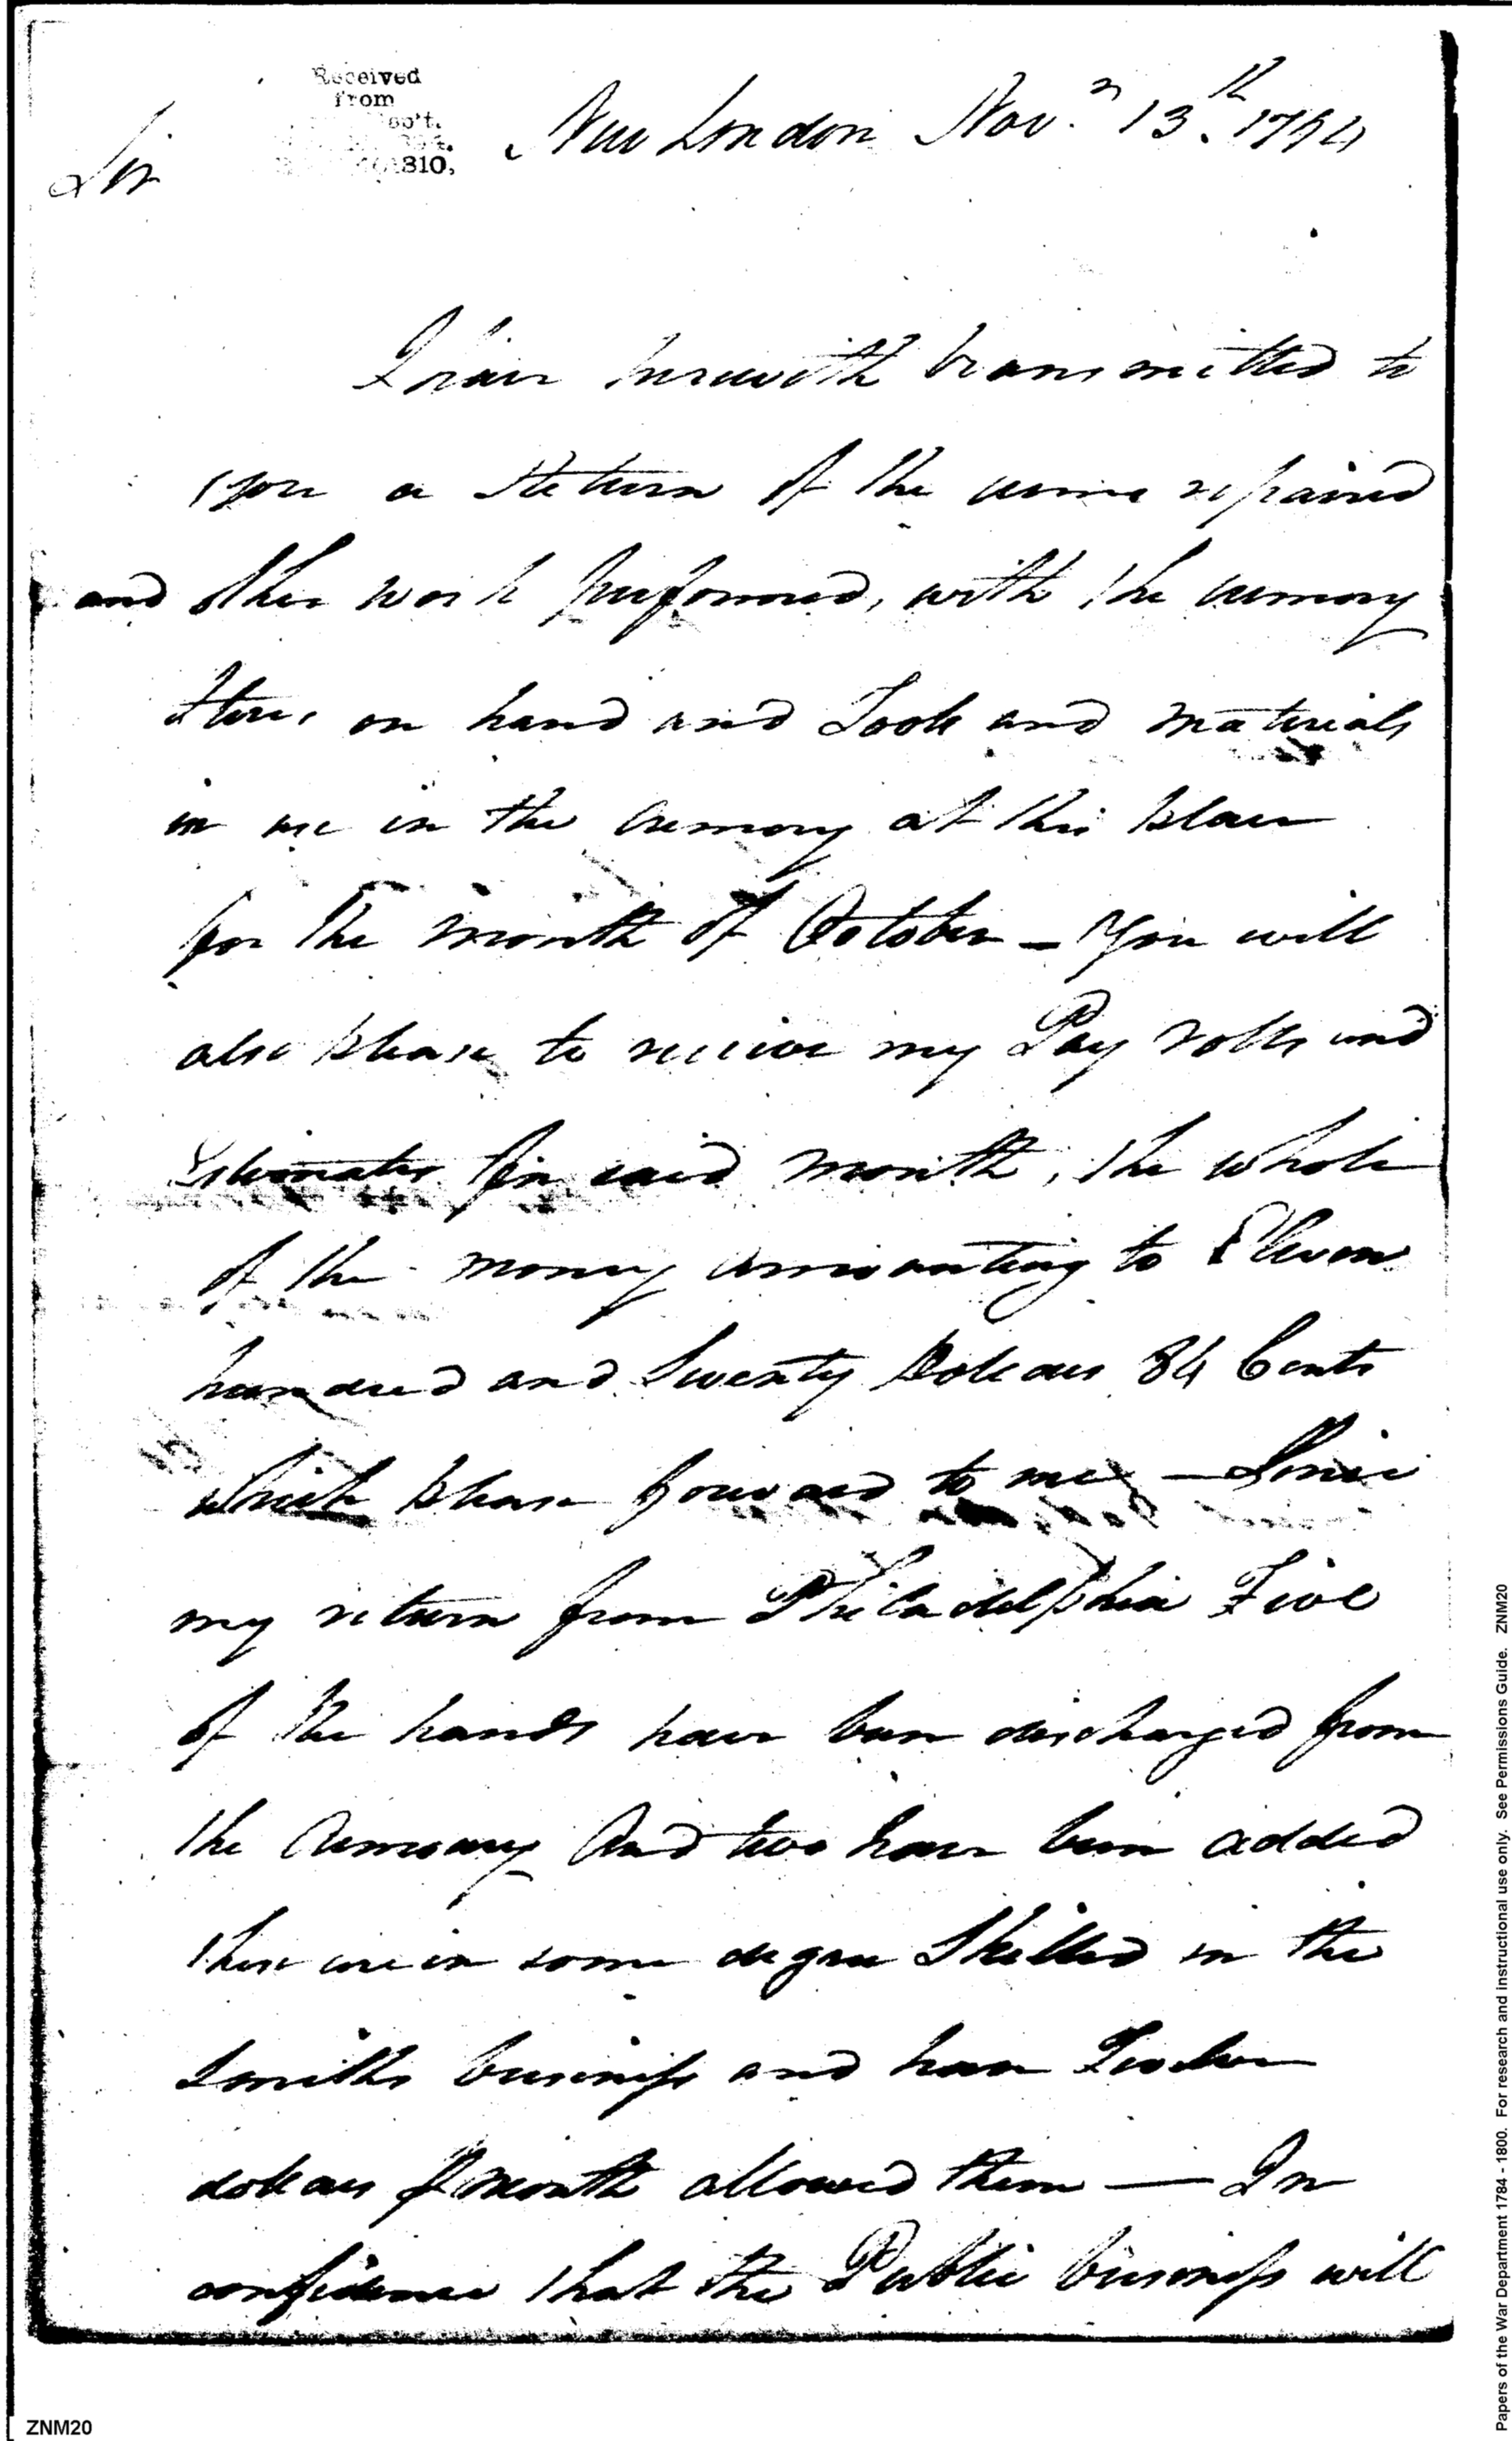 Received
from
1810,
New London Nov.r 13th. 1794
Sir
I have herewith transmitted to
you a Return of the arms repaired
and other work performed, with the armory
stores on hand and Tools and materials
in use in the armory at this place
for the month of October – You will
also please to receive my Pay rolls and
Estimates for said month, the whole
of the money amounting to Eleven
hundred and twenty Dollars 84 Cents
which please forward to me – Since
my return from Philadelphia Five
of the hands have been discharged from
the Armory And two have been added
these are in some degree Skilled in the
Smiths business and have Twelve
dollars ⅌ month allowed them — In
confidence that the Public business will
ZNM20
Papers of the War Department 1784 - 1800. For research and instructional use only. See Permissions Guide. ZNM20